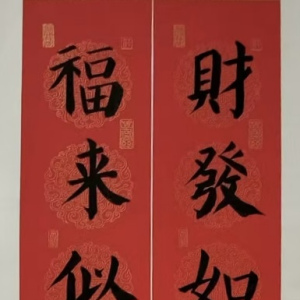 財發如
福来似